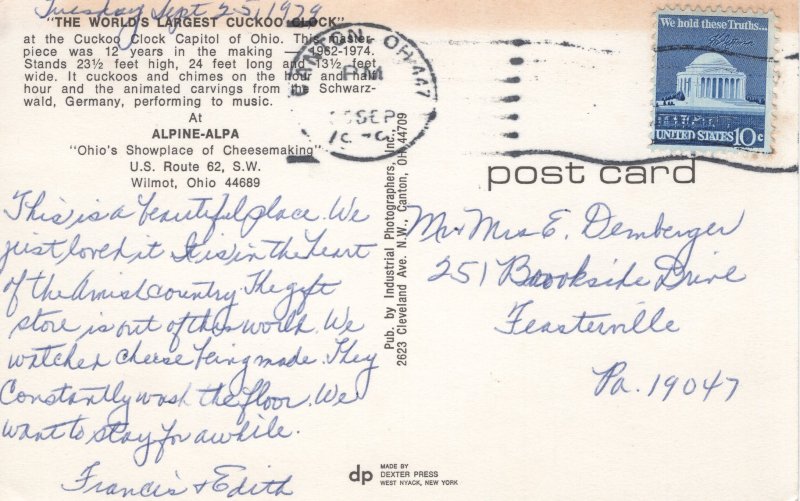 Tuesday Sept 25, 1979
"THE WORLD'S LARGEST CUCKOO CLOCK"
at the Cuckoo Clock Capitol of Ohio. This master-
piece was 12 years in the making — 1962-1974.
Stands 23½ feet high, 24 feet long and 13½ feet
wide. It cuckoos and chimes on the hour and half
hour and the animated carvings from the Schwarz-
wald, Germany, performing to music.
At
ALPINE-ALPA
"Ohio's Showplace of Cheesemaking"
U.S. Route 62, S.W.
Wilmot, Ohio 44689
This is a beautiful place. We
just loved it It is in the heart
of the Amish country. The gift
store is out of this world. We
watched cheese being made. They
Constantly wash the floor. We
want to stay for awhile.
Francis + Edith
Pub. by Industrial Photographers, Inc.,
2623 Cleveland Ave. N.W., Canton, OH 44709
CANTON, OH 447
PM
SEP
1979
We hold these Truths...
UNITED STATES 10c
post card
Mr Mrs E. Demberger
251 Brookside Drive
Feasterville
Pa. 19047
dp
MADE BY
DEXTER PRESS
WEST NYACK, NEW YORK